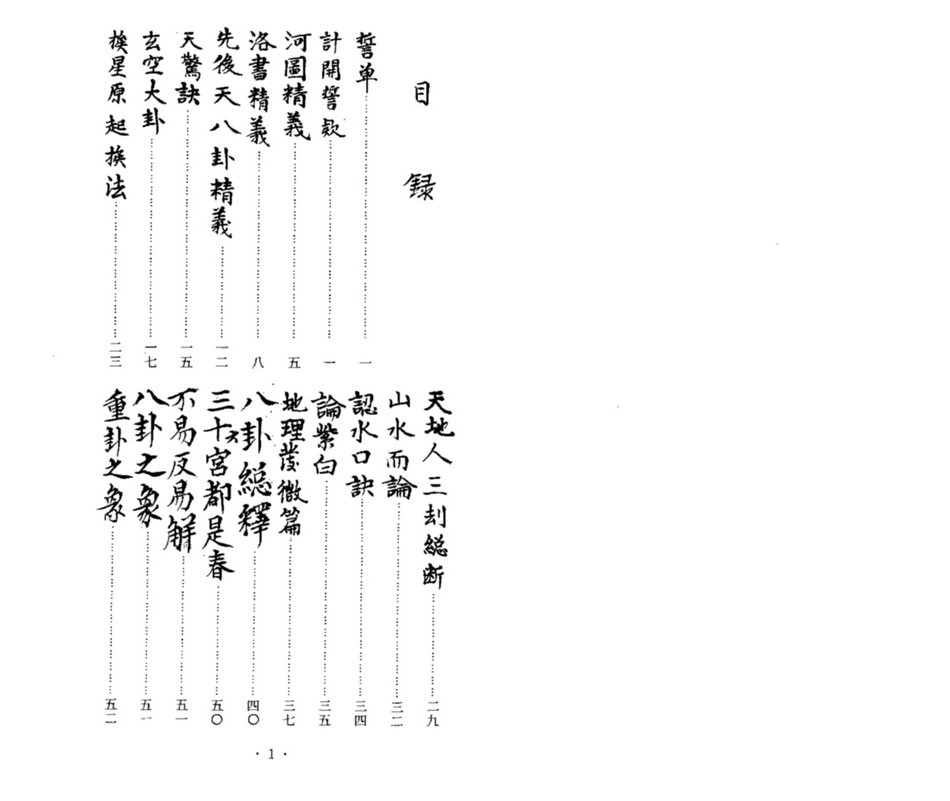 目録
誓单 一
計開誓欵 一
河圖精義 五
洛書精義 八
先後天八卦精義 一二
天驚訣 一五
玄空大卦 一七
挨星原起挨法 二三
天地人三刦総断 二九
山水而論 三二
認水口訣 三四
論紫白 三五
地理發微篇 三七
八卦総釋 四〇
三十六宮都是春 五〇
不易反易解 五一
八卦之象 五一
重卦之象 五二
·1·